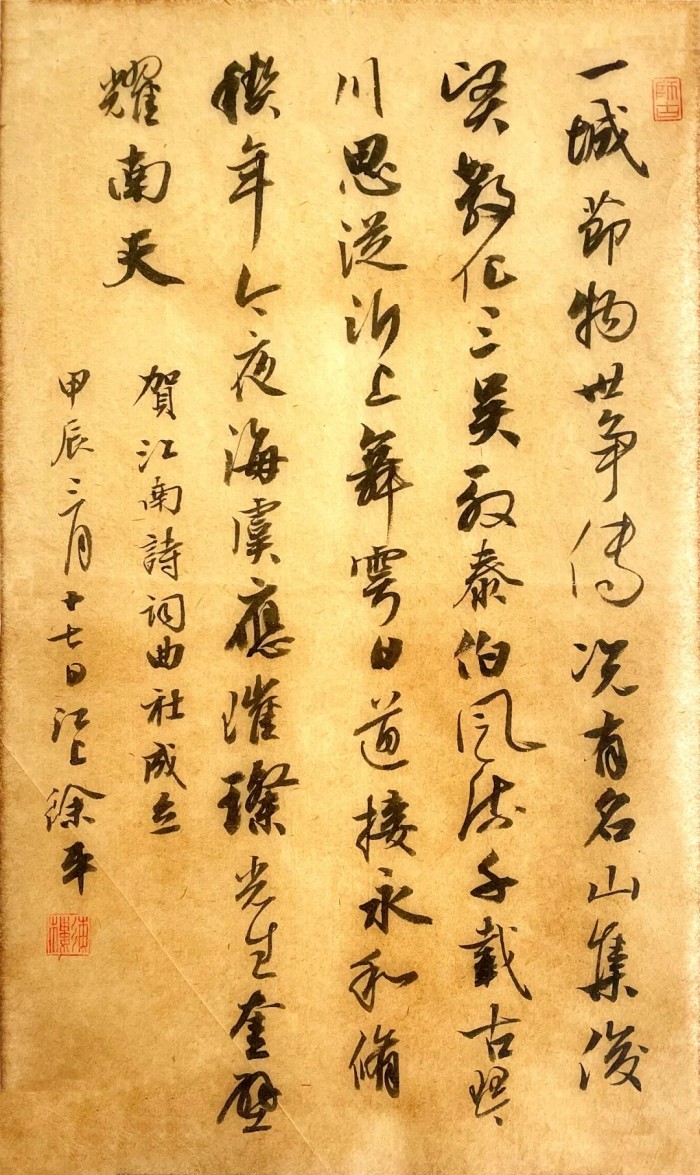 師古
一城節物世争傳况有名山集俊
賢教化三吴泰伯风流千載古琴
川思從沂上舞雩日道接永和脩
禊年今夜海虞應璀璨光生奎壁
耀南天
賀江南詩詞曲社成立
甲辰三月十七日江上徐平